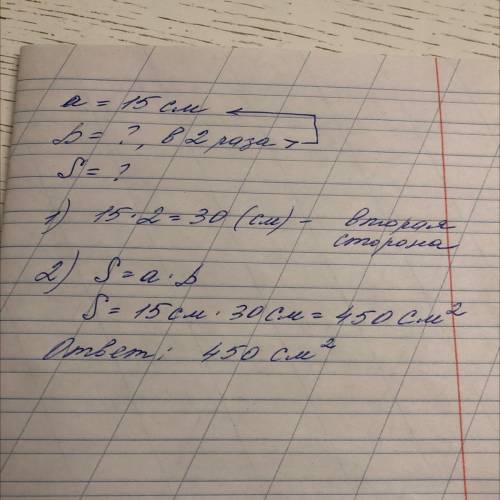 a = 15 см
b = ?, в 2 раза >
S = ?
1) 15 · 2 = 30 (см) - вторая сторона
2) S = a · b
S = 15 см · 30 см = 450 см²
Ответ: 450 см²